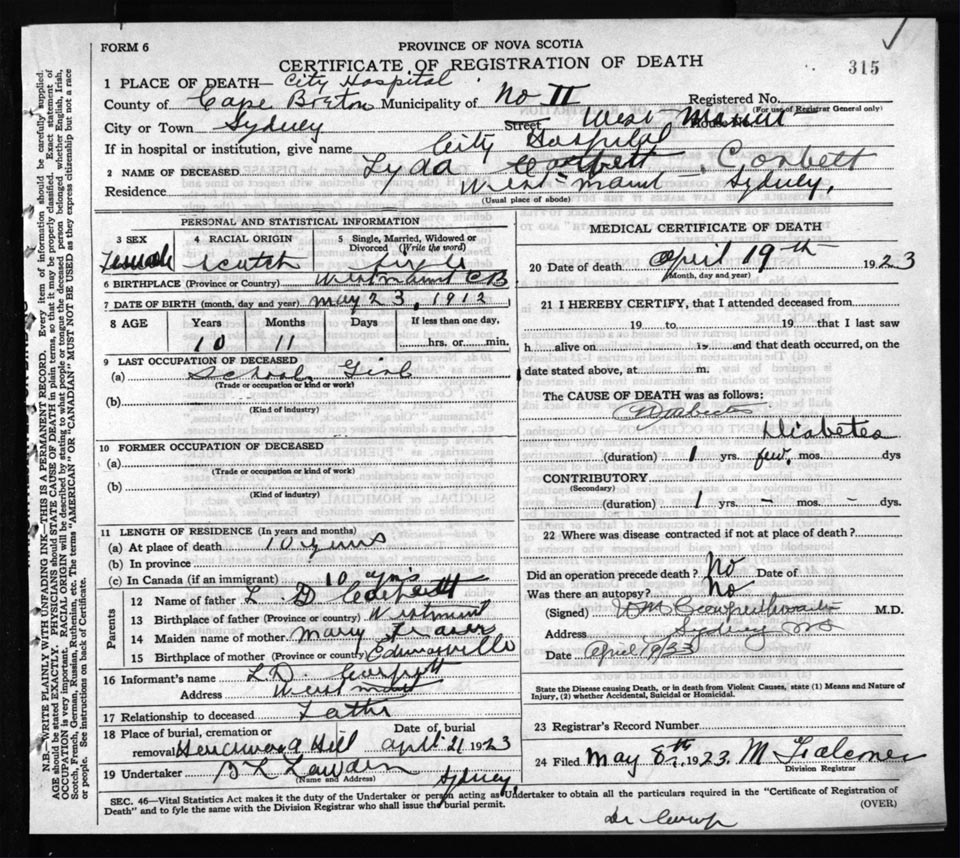 FORM 6
PROVINCE OF NOVA SCOTIA
CERTIFICATE OF REGISTRATION OF DEATH
315
1 PLACE OF DEATH— City Hospital
County of Cape Breton Municipality of No II Registered No.
(For use of Registrar General only)
City or Town Sydney Street West Mount
If in hospital or institution, give name City Hospital
2 NAME OF DECEASED Lyda Corbett Corbett
Residence West-mount - Sydney,
(Usual place of abode)
PERSONAL AND STATISTICAL INFORMATION
3 SEX Female
4 RACIAL ORIGIN scotch
5 Single, Married, Widowed or Divorced (Write the word) single
6 BIRTHPLACE (Province or Country) Westmount C B
7 DATE OF BIRTH (month, day and year) may 23, 1912
8 AGE Years Months Days If less than one day,
10 11 hrs. or min.
9 LAST OCCUPATION OF DECEASED
(a) School Girl
(Trade or occupation or kind or work)
(b)
(Kind of industry)
10 FORMER OCCUPATION OF DECEASED
(a)
(Trade or occupation or kind of work)
(b)
(Kind of industry)
11 LENGTH OF RESIDENCE (In years and months)
(a) At place of death 10 years
(b) In province
(c) In Canada (if an immigrant) 10 yrs
Parents
12 Name of father L. D
13 Birthplace of father (Province or country) Westmount
14 Maiden name of mother Mary
15 Birthplace of mother (Province or country) Edwardsville
16 Informant's name L. D.
Address West mount
17 Relationship to deceased Father
18 Place of burial, cremation or removal Hill
Date of burial april 21 1923
19 Undertaker
(Name and Address) Sydney,
MEDICAL CERTIFICATE OF DEATH
20 Date of death april 19th 1923
(Month, day and year)
21 I HEREBY CERTIFY, that I attended deceased from
19 to, 19 that I last saw
h alive on 19 and that death occurred, on the
date stated above, at m.
The CAUSE OF DEATH was as follows:
Diabetes
Diabetes
(duration) 1 yrs. few. mos. dys
CONTRIBUTORY
(Secondary)
(duration) 1 yrs. - mos. - dys.
22 Where was disease contracted if not at place of death?
Did an operation precede death? No Date of
Was there an autopsy? No
(Signed) M.D.
Address Sydney
Date April 19/23
State the Disease causing Death, or in death from Violent Causes, state (1) Means and Nature of
Injury, (2) whether Accidental, Suicidal or Homicidal.
23 Registrar's Record Number
24 Filed May 8th, 1923. M
Division Registrar
SEC. 46—Vital Statistics Act makes it the duty of the Undertaker or person acting as Undertaker to obtain all the particulars required in the "Certificate of Registration of
Death" and to fyle the same with the Division Registrar who shall issue the burial permit.
(OVER)
N.B.—WRITE PLAINLY WITH UNFADING INK—THIS IS A PERMANENT RECORD. Every item of information should be carefully supplied.
AGE should be stated EXACTLY. PHYSICIANS should STATE CAUSE OF DEATH in plain terms, so that it may be properly classified. Exact statement of
OCCUPATION is very important. RACIAL ORIGIN will be described by stating to what people or tongue the deceased person belonged whether English, Irish,
Scotch, French, German, Russian, Ruthenian, etc. The terms "AMERICAN" OR "CANADIAN" MUST NOT BE USED as they express citizenship but not a race
or people. See instructions on back of Certificate.